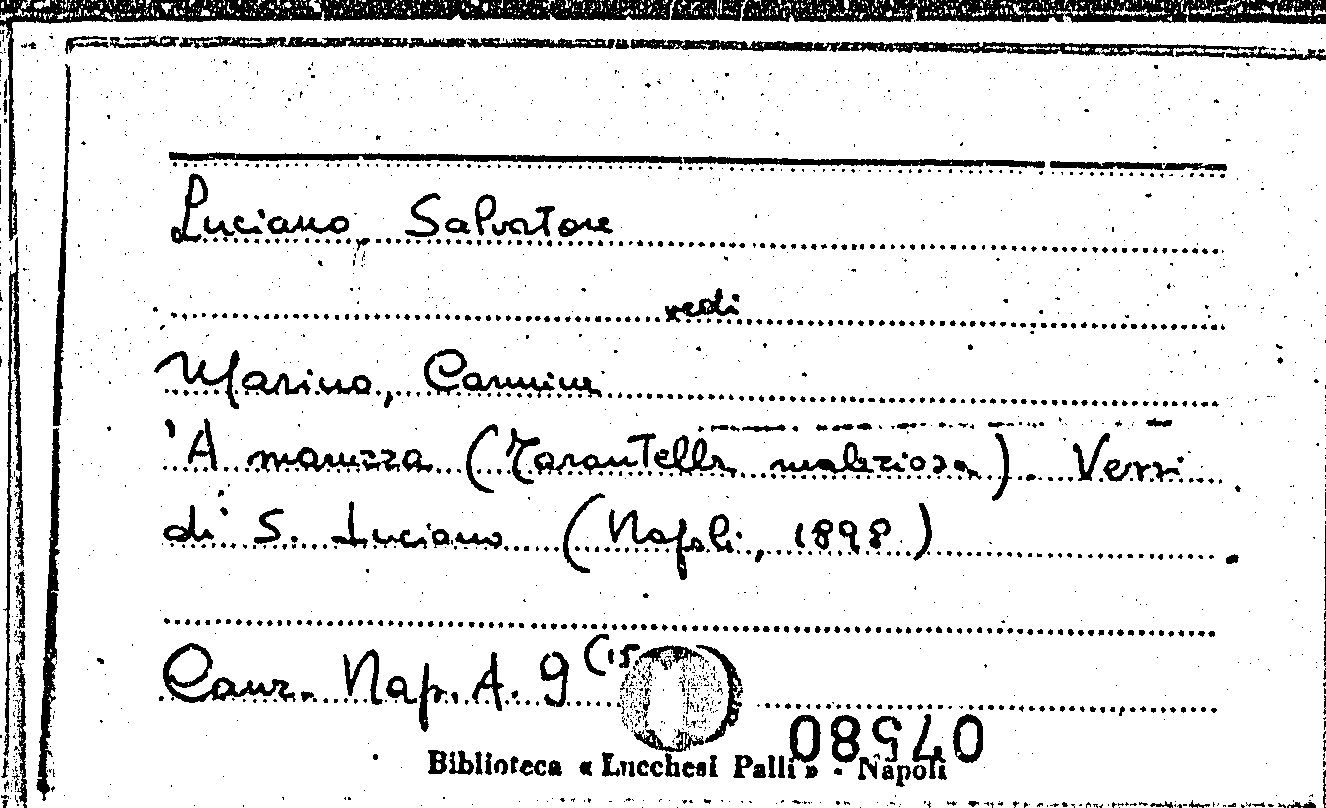 Luciano, Salvatore
vedi
Marino, Carmine
'A maruzza (Tarantella maliziosa). Versi
di S. Luciano (Napoli, 1898)
Canz. Nap. A. 9 (15
08540
Biblioteca « Lucchesi Palli » - Napoli